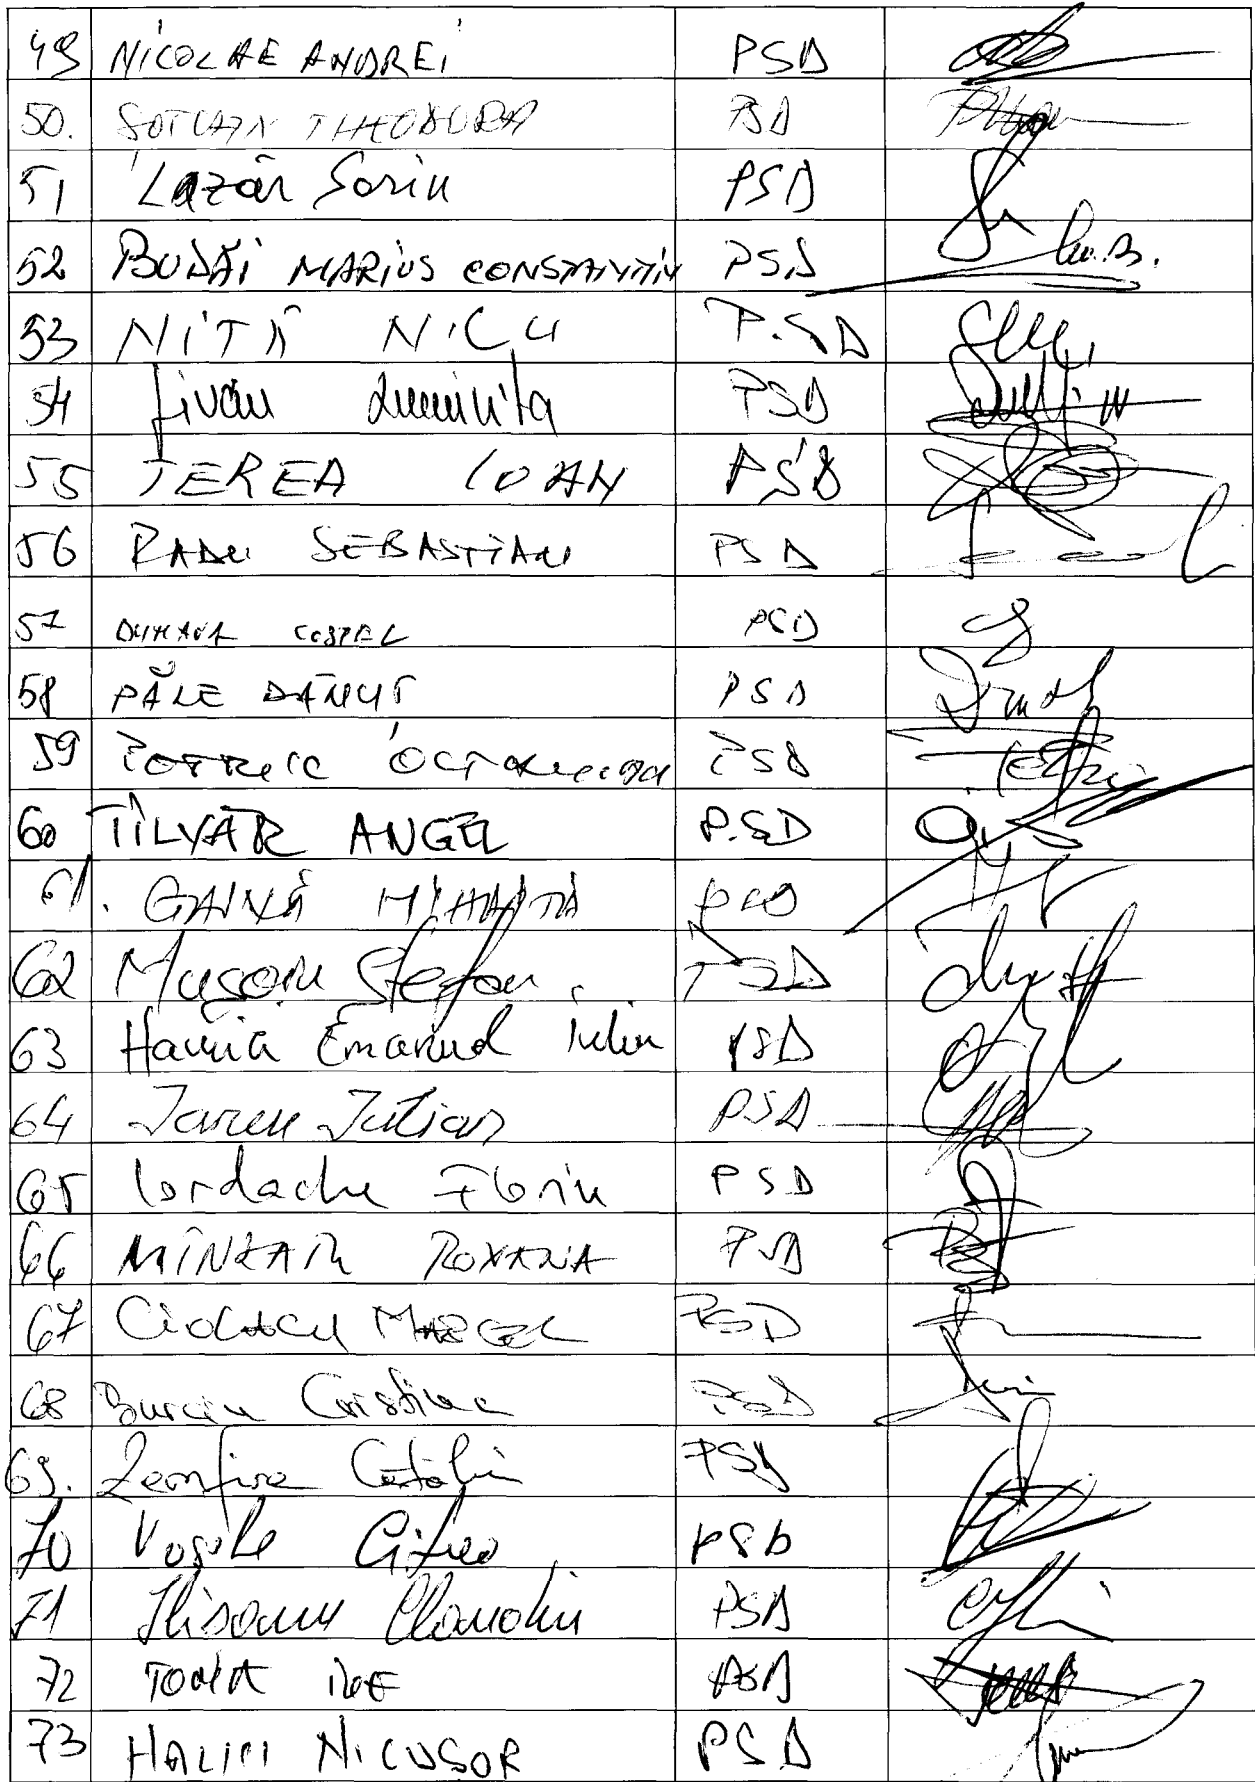 49 NICOLAE ANDREI PSD
50. ȘOTCAN THEODORA PSD
51 Lazăr Sorin PSD
52 BUDĂI MARIUS CONSTANTIN PSD
53 NIȚĂ NICU P.SD
54 Jivan Luminita PSD
55 TEREA IOAN PSD
56 RADU SEBASTIAN PSD
57 COSTEL PSD
58 PĂLE DĂNUȚ PSD
59 PSD
60 TÎLVĂR ANGEL P.SD
61. GAINĂ MIHĂIȚĂ PSD
62 Mușoiu Ștefan PSD
63 Havria Emanuel Iulian PSD
64 Iancu Iulian PSD
65 Iordache Florin PSD
66 MÎNZATU ROXANA PSD
67 Ciolacu MARCEL PSD
68 Burciu Cristina PSD
69. Zamfira Cătălin PSD
70 Vasile Cîtea PSD
71 Ilișanu Claudiu PSD
72 TOMA ILIE PSD
73 HALICI NICUȘOR PSD